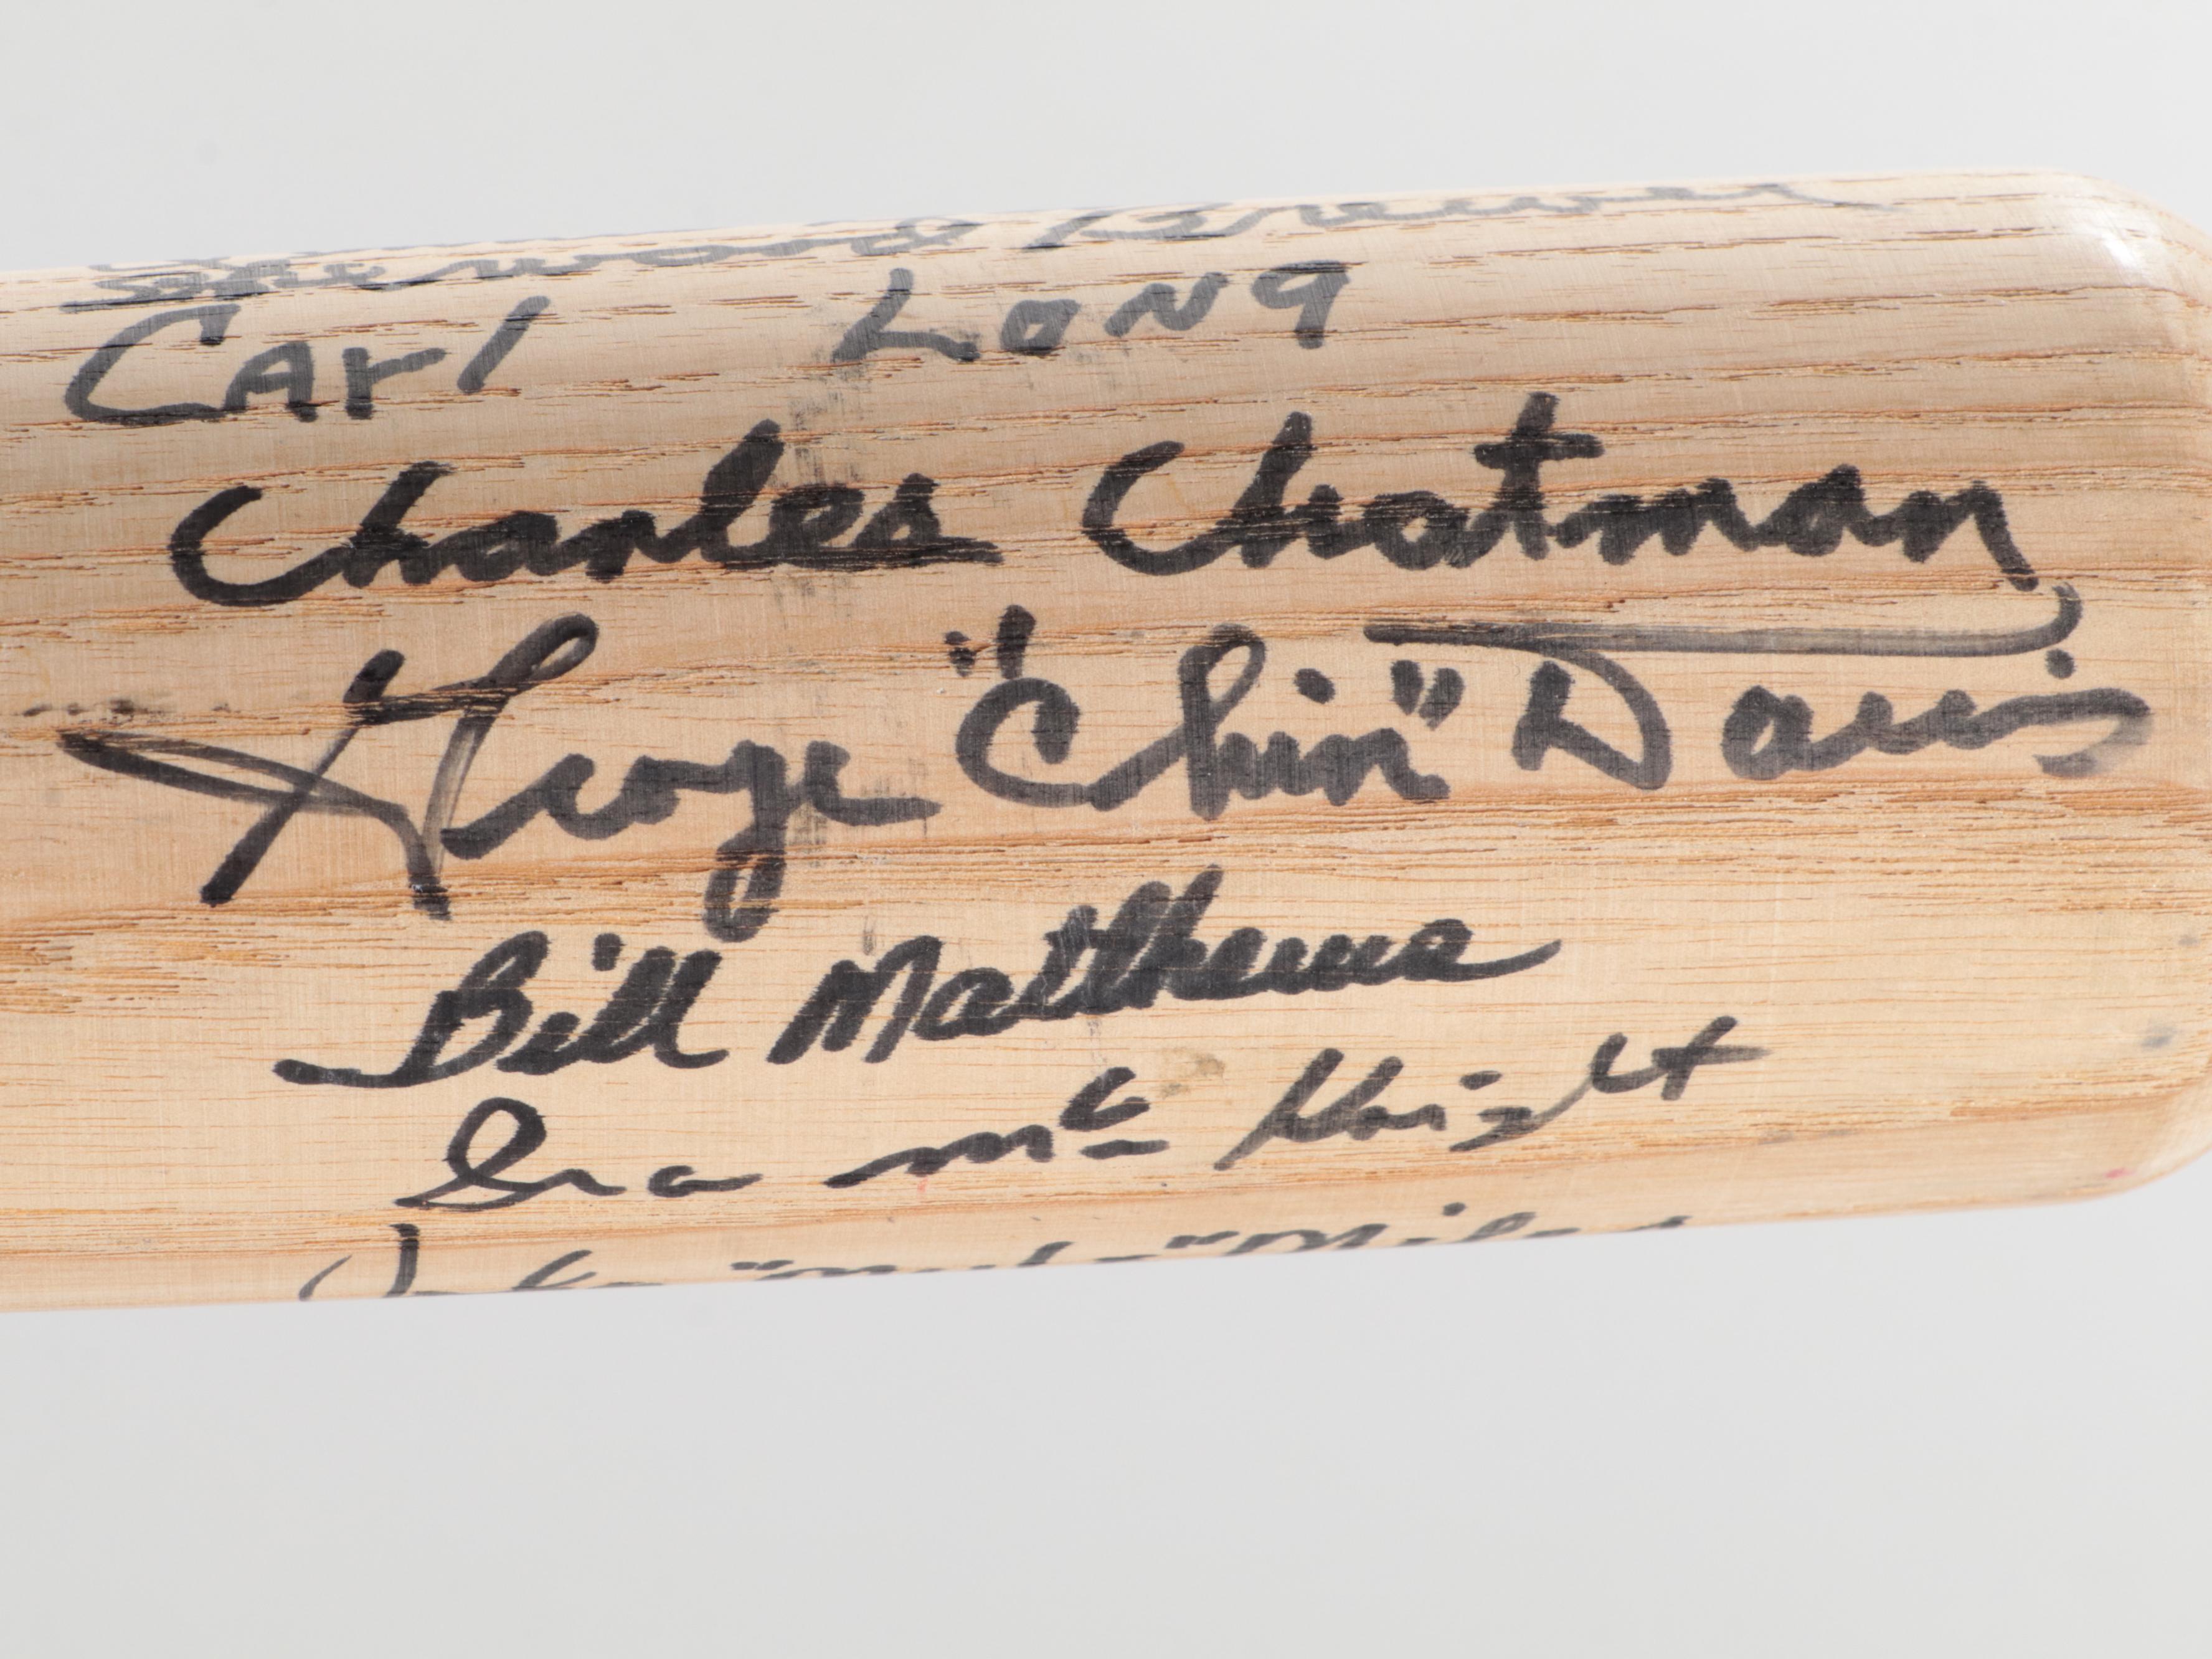 Sherwood Brewer
Carl Long
Charles Chatman
George "Chin" Davis
Bill Matthews
Ira McKnight